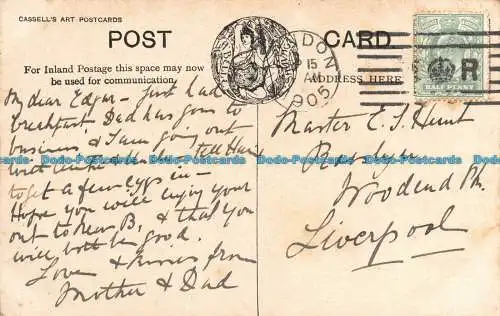 CASSELL'S ART POSTCARDS
POST CARD
For Inland Postage this space may now
be used for communication.
ADDRESS HERE
LONDON
15
AM
905
HALF PENNY
R
My dear Edgar - just had
breakfast. Dad has gone to
business & I am going out
with Auntie tell
to get a few eggs in -
Hope you will enjoy your
out to New B, & that you
will both be good.
Love & kisses from
Mother & Dad
Master E. S. Hunt
Roslyn
Woodend Pk.
Liverpool
Dodo-Postcards Dodo-Postcards Dodo-Postcards Dodo-Postcards Dodo-Postcards